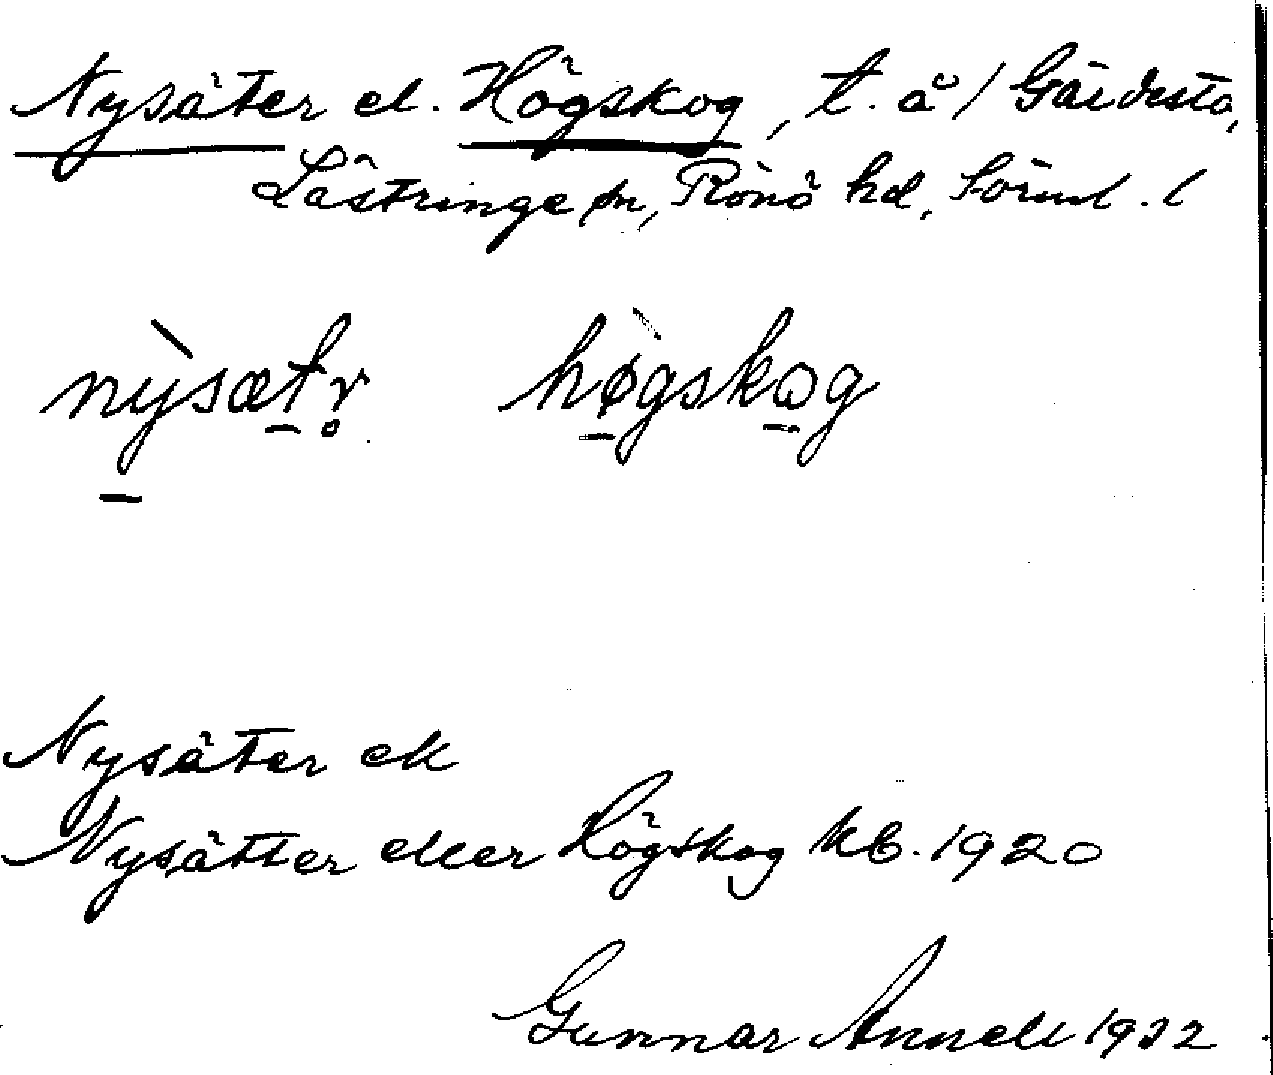 Nysäter el. Högskog, t. å / Gärdesta,
Lästringe sn, Rönö hd, Sörml. l
nỳsætr̥ hø̀gskog
Nysäter ek
Nysätter eller Högskog kb. 1920
Gunnar Annell 1932